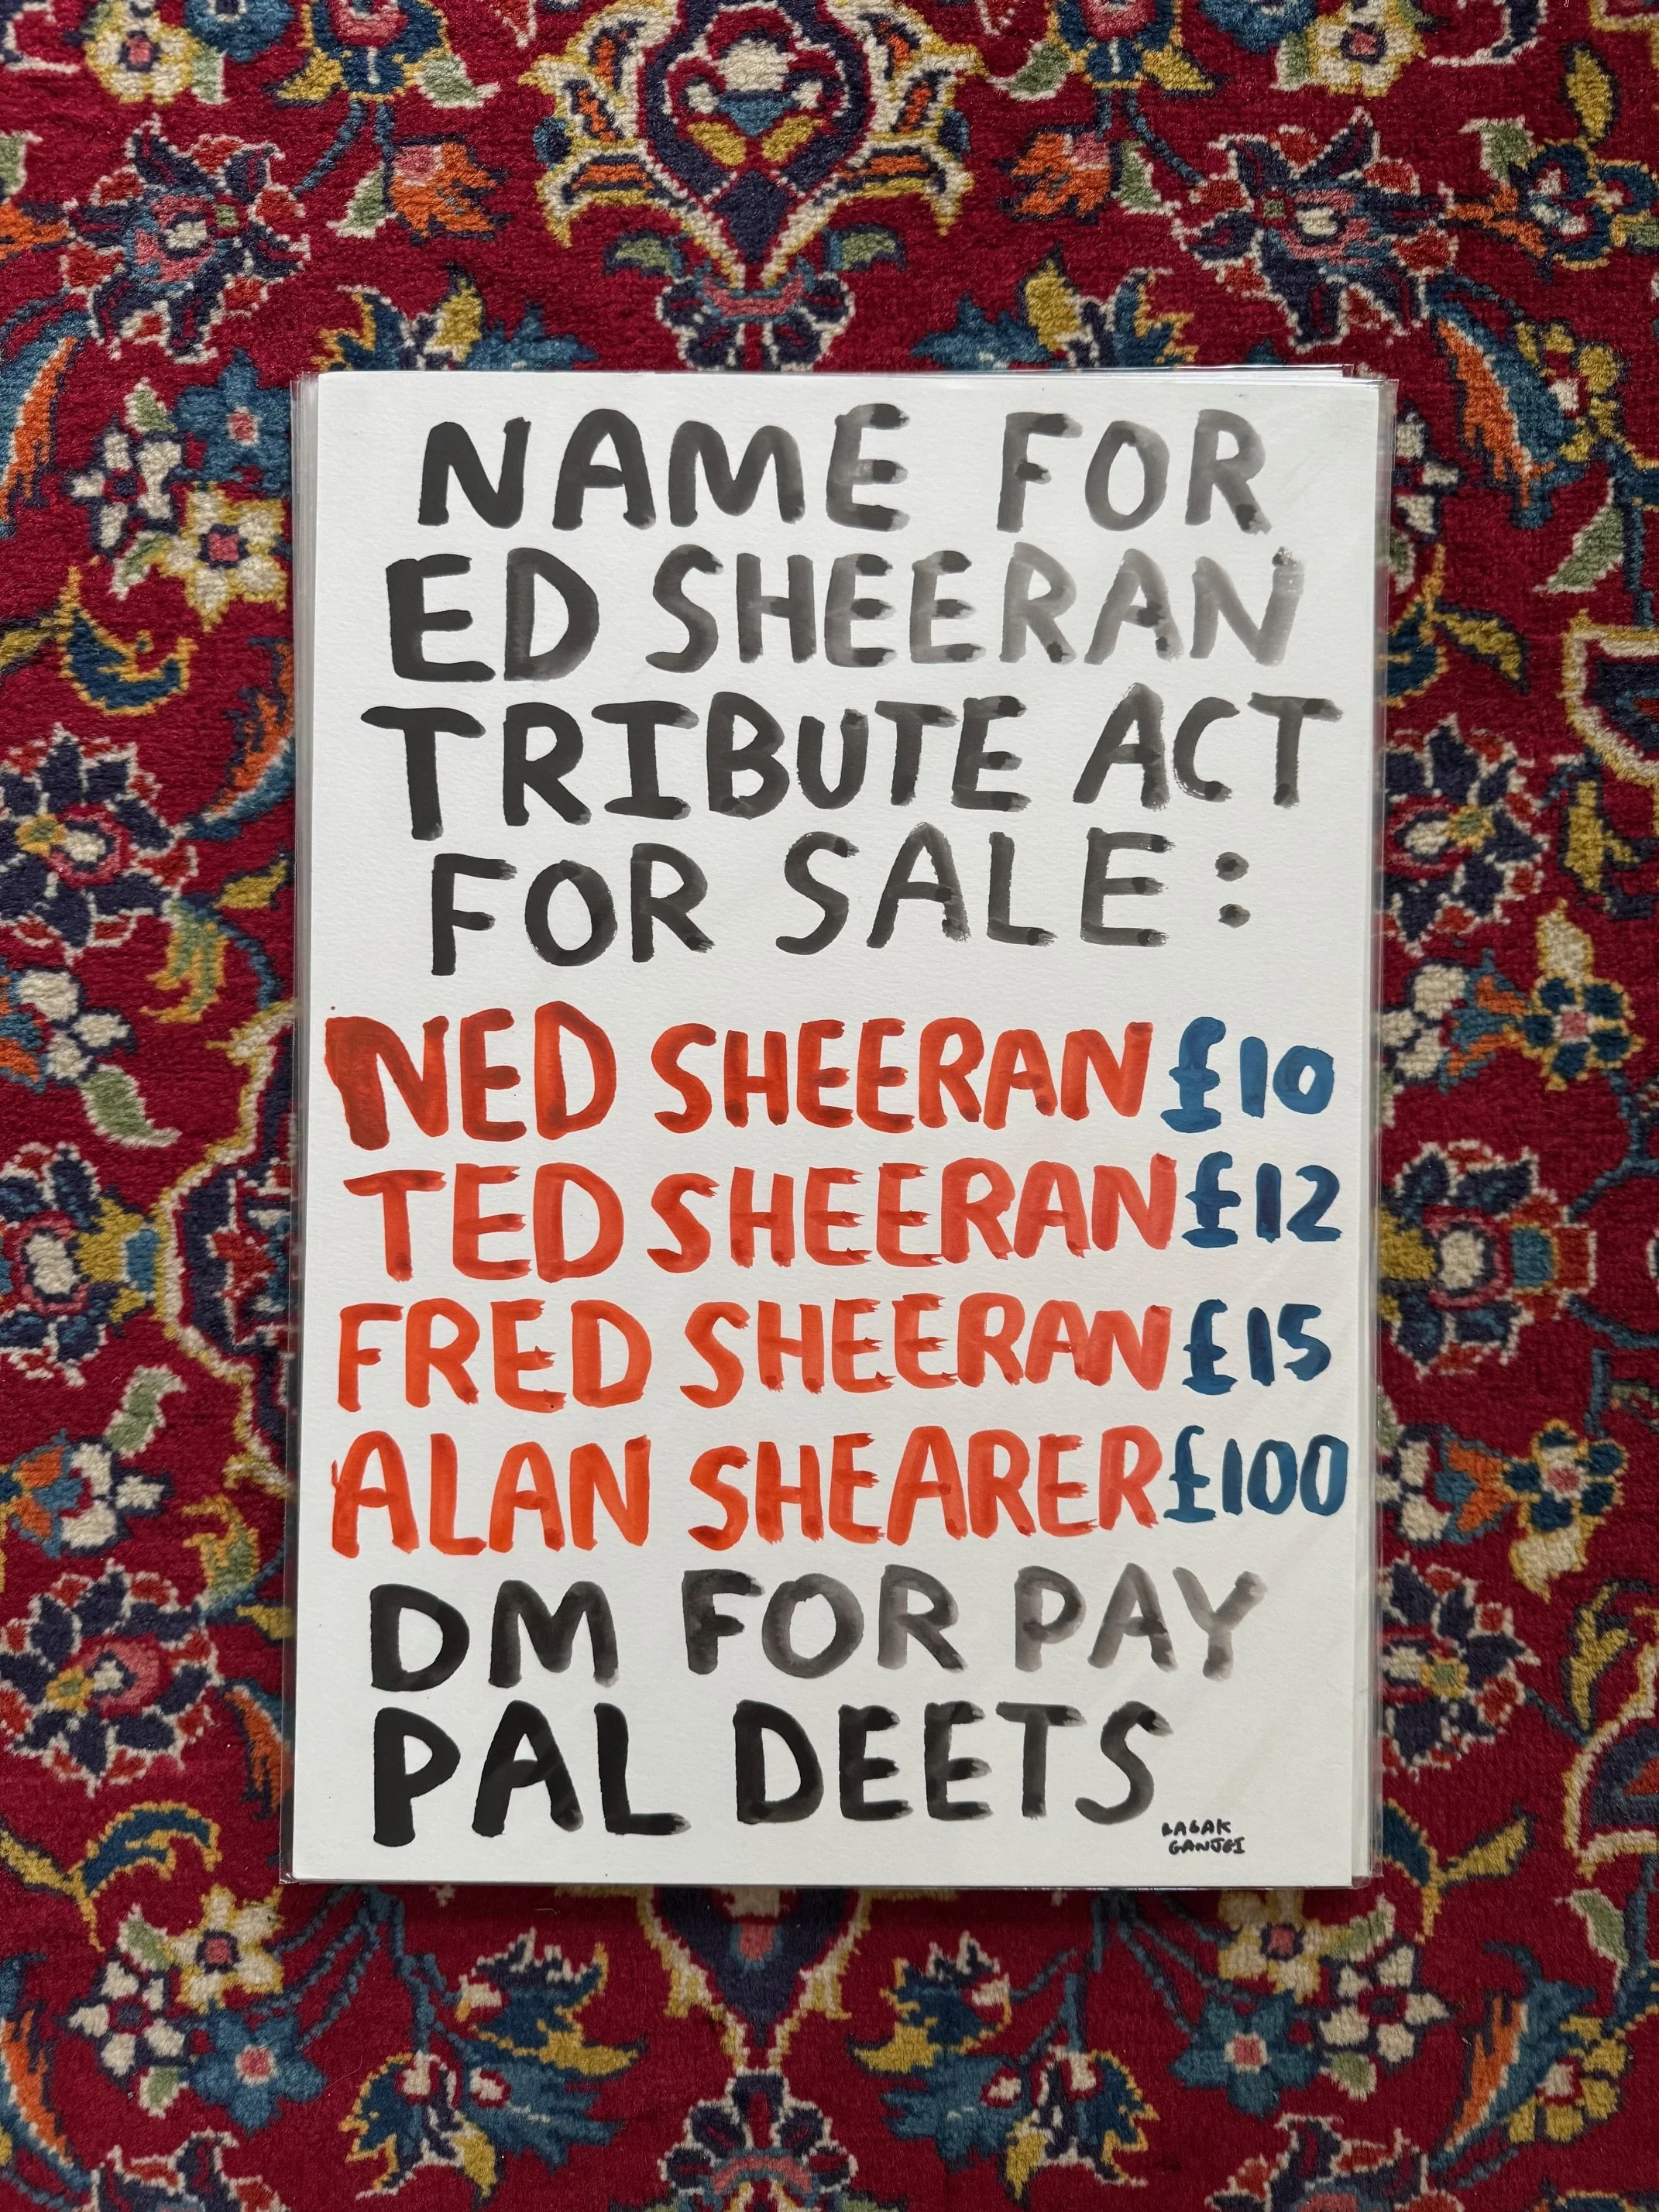 NAME FOR
ED SHEERAN
TRIBUTE ACT
FOR SALE:
NED SHEERAN £10
TED SHEERAN £12
FRED SHEERAN £15
ALAN SHEARER £100
DM FOR PAY
PAL DEETS
BABAK
GANJEI